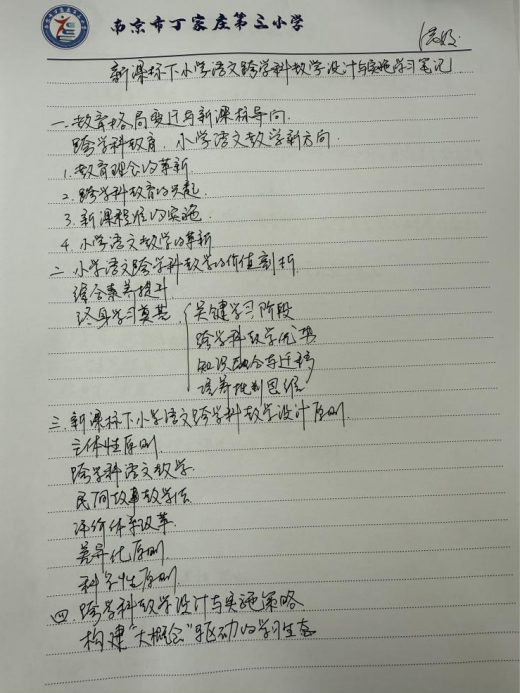 南京市丁家庄第三小学
新课标下小学语文跨学科教学设计与实施学习笔记
一.教育格局变迁与新课标导向.
跨学科教育.小学语文教学新方向.
1.教育理念的革新
2.跨学科教育的兴起.
3.新课程标的实施.
4.小学语文教学的革新
二.小学语文跨学科教学的价值剖析.
综合素养提升.
终身学习奠基. 关键学习阶段
跨学科教学优势
知识融合与迁移
培养批判思维
三.新课标下小学语文跨学科教学设计原则.
主体性原则.
跨学科语文教学.
民间故事教学法.
评价体系改革.
差异化原则.
科学性原则.
四.跨学科教学设计与实施策略
构建"大概念"驱动的学习生态